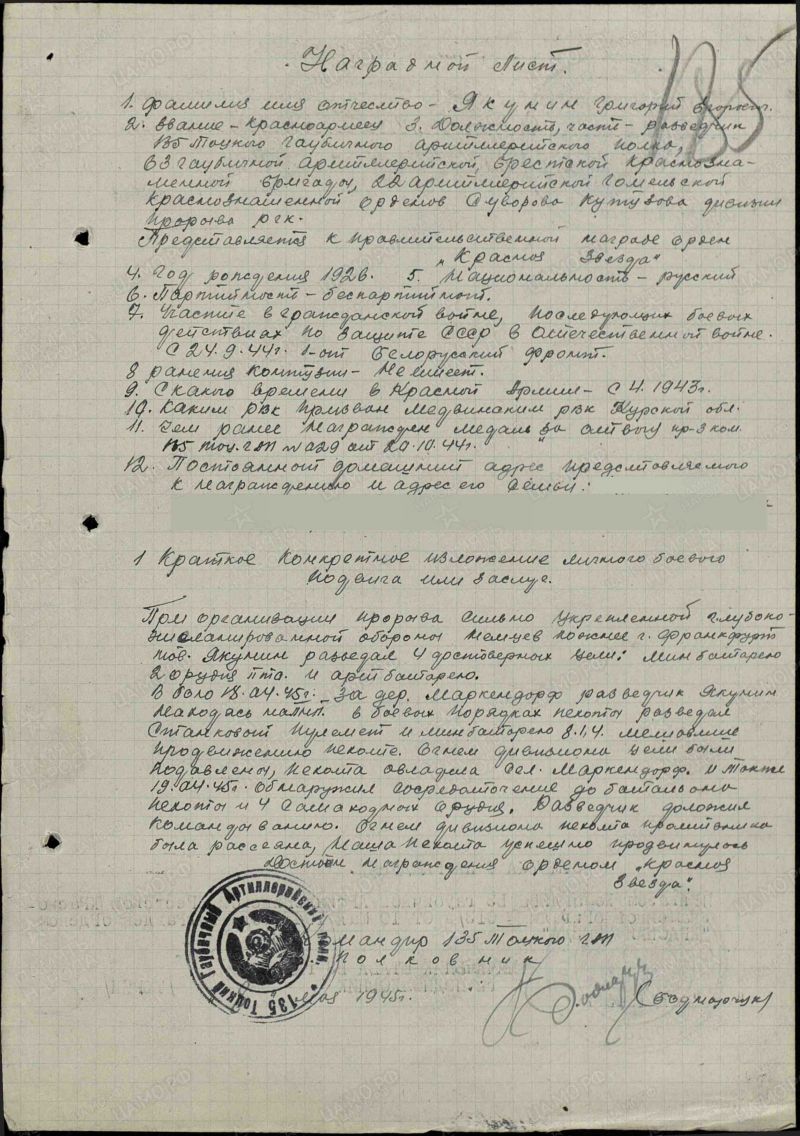 Наградной Лист.
135
1. Фамилия имя отчество - Якунин Григорий Егорович.
2. Звание - Красноармеец 3. Должность, часть - разведчик
135 Тоцкого Гаубичного артиллерийского полка,
63 Гаубичной артиллерийской Брестской Краснозна-
менной бригады, 22 артиллерийской Гомельской
Краснознаменной орденов Суворова Кутузова дивизии
Прорыва РГК.
Представляется к правительственной награде орден
"Красная Звезда"
4. Год рождения 1926. 5. Национальность - русский
6. Партийность - беспартийной.
7. Участие в гражданской войне, последующих боевых
действиях по защите СССР в отечественной войне.
С 24.9.44г. 1-ый Белорусский фронт.
8 ранения контузии - Не имеет.
9. С какого времени в Красной Армии - с 4. 1943г.
10. Каким рвк призван Медвинским рвк Курской обл.
11. Чем ранее награжден медаль "За отвагу пр-з ком.
135 тоц. гап №029 от 20.10.44г.
12. Постоянной домашний адрес представляемого
к награждению и адрес его семьи:
1 Краткое Конкретное изложение личного боевого
подвига или заслуг.
При организации прорыва сильно укрепленной глубоко-
эшелонированной обороны немцев южнее г. Франкфурт
тов. Якунин разведал 4 достоверных цели: минбатарею
2 орудия пто. и артбатарею.
В бою 18.04.45г. за дер. Маркендорф разведчик Якунин
находясь на ПНП. в боевых порядках пехоты разведал
станковый пулемет и минбатарею 8.1.4. мешавшие
продвижению пехоте. Огнем дивизиона цели были
подавлены, пехота овладела сел. Маркендорф. и также
19.04.45г. обнаружил сосредоточение до батальона
пехоты и 4 самоходных орудия. Разведчик доложил
командованию. Огнем дивизиона пехота противника
была рассеяна, наша пехота успешно продвинулось
Достоин награждения орденом "Красная
Звезда".
Командир 135 Тоцкого гап
Полковник
(Боднарчук)
мая 1945г.
135 Тоцкий Гаубичный Артиллерийский полк.